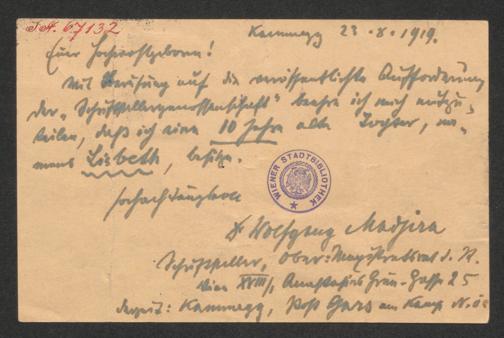 J.N. 67132
Kamegg 23.8.1919.
Euer Hochwohlgeboren!
Mit Berufung auf die veröffentlichte Aufforderung
der „Schriftstellergenossenschaft“ beehre ich mich mitzu-
teilen, daß ich eine 10 Jahre alte Tochter, na-
mens Lisbeth, besitze.
Hochachtungsvoll
WIENER STADTBIBLIOTHEK
Dr Wolfgang Madjera
Schriftsteller, Ober-Magistratsrat d. R.
Wien XVIII/1 Anastasius Grün-Gasse 25
derzeit: Kamegg, Post Gars am Kamp N.Ö.